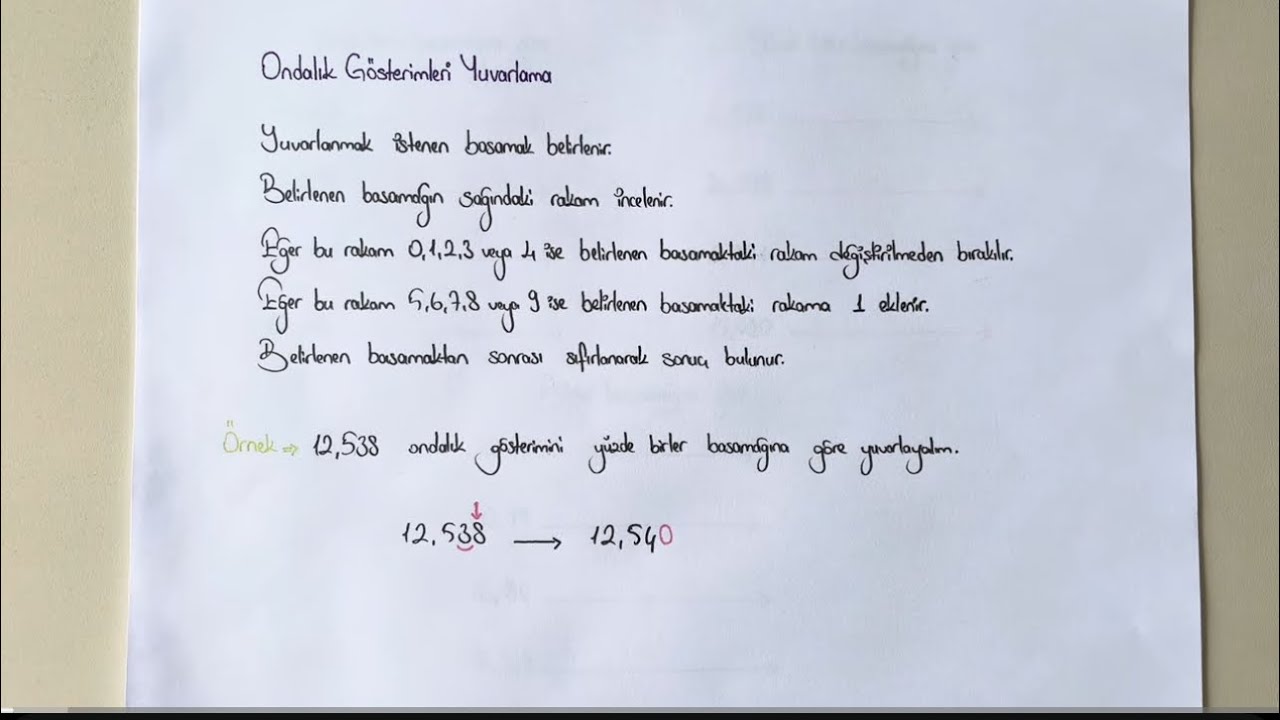 Ondalık Gösterimleri Yuvarlama
Yuvarlanmak istenen basamak belirlenir.
Belirlenen basamağın sağındaki rakam incelenir.
Eğer bu rakam 0,1,2,3 veya 4 ise belirlenen basamaktaki rakam değiştirilmeden bırakılır.
Eğer bu rakam 5,6,7,8 veya 9 ise belirlenen basamaktaki rakama 1 eklenir.
Belirlenen basamaktan sonrası sıfırlanarak sonuç bulunur.
Örnek ⇒ 12,538 ondalık gösterimini yüzde birler basamağına göre yuvarlayalım.
12,538 → 12,540